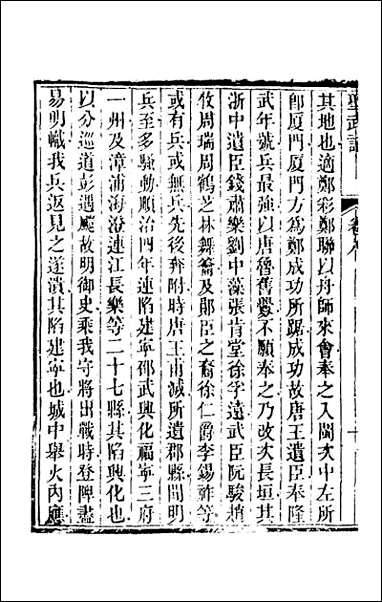 聖武記 卷八 十
其地也適鄭彩鄭聯以舟師來會奉之入閩次中左所
卽厦門厦門方爲鄭成功所踞成功故唐王遺臣奉隆
武年號兵最強以唐魯舊釁不願奉之乃改次長垣其
浙中遺臣錢肅樂劉中藻張肯堂徐孚遠武臣阮駿趙
牧周瑞周鶴芝林舞喬及鄖臣之裔徐仁爵李錫祚等
或有兵或無兵先後奔附時唐王甫滅所遺郡縣間明
兵至多騷動順治四年連陷建寧邵武興化福寧三府
一州及漳浦海澄連江長樂等二十七縣其陷興化也
以分巡道彭遇颽故明御史乘我守將出戰時登陴盡
易明幟我兵返見之遂潰其陷建寧也城中舉火內應